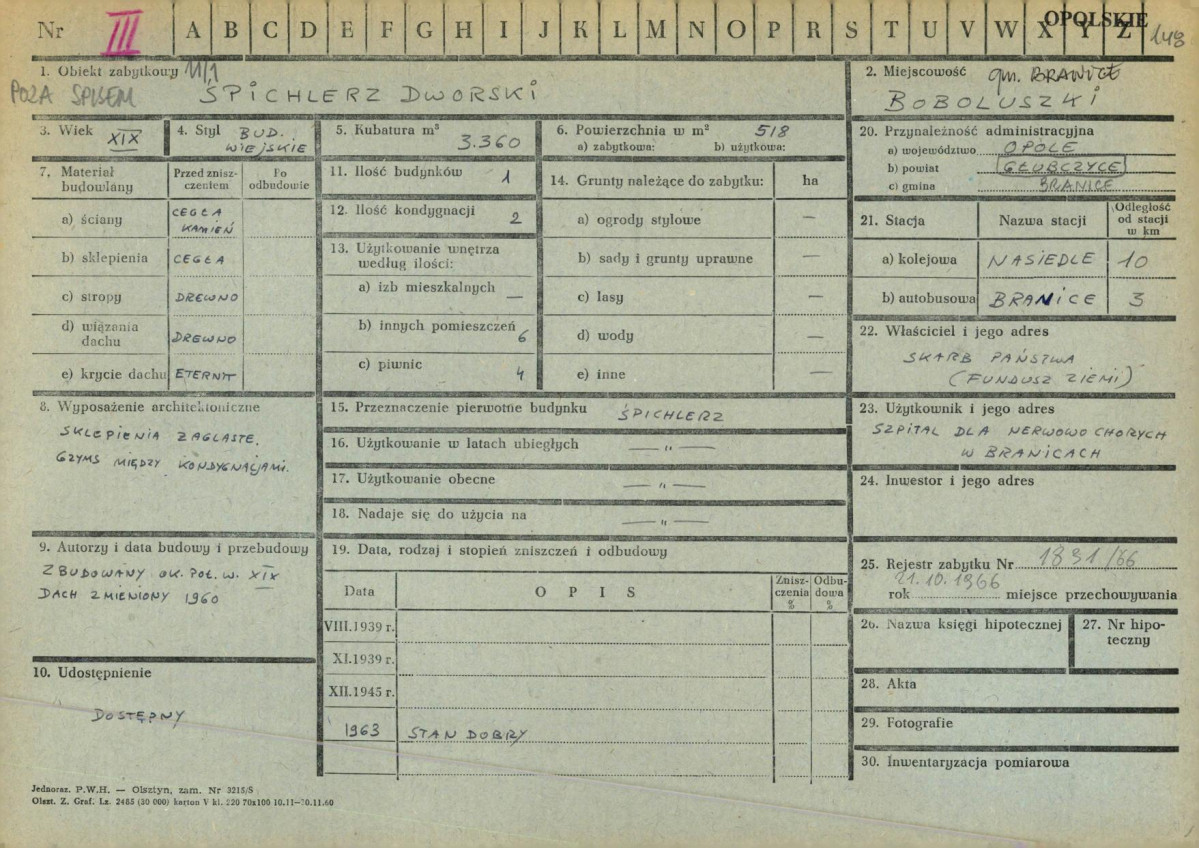 Nr III A B C D E F G H I J K L M N O P R S T U V W X Y Z OPOLSKIE 143
1. Obiekt zabytkowy 11/1
POZA SPISEM
ŚPICHLERZ DWORSKI
2. Miejscowość gm. BRANICE
BOBOLUSZKI
3. Wiek XIX
4. Styl BUD. WIEJSKIE
5. Kubatura m³ 3.360
6. Powierzchnia w m² 518
a) zabytkowa: b) użytkowa:
7. Materiał budowlany
Przed zniszczeniem
Po odbudowie
a) ściany CEGŁA KAMIEŃ
b) sklepienia CEGŁA
c) stropy DREWNO
d) wiązania dachu DREWNO
e) krycie dachu ETERNIT
8. Wyposażenie architektoniczne
SKLEPIENIA ŻAGLASTE.
GZYMS MIĘDZY KONDYGNACJAMI.
9. Autorzy i data budowy i przebudowy
ZBUDOWANY OK. POŁ. W. XIX
DACH ZMIENIONY 1960
10. Udostępnienie
DOSTĘPNY
11. Ilość budynków 1
12. Ilość kondygnacji 2
13. Użytkowanie wnętrza
według ilości:
a) izb mieszkalnych —
b) innych pomieszczeń 6
c) piwnic 4
14. Grunty należące do zabytku: ha
a) ogrody stylowe —
b) sady i grunty uprawne —
c) lasy —
d) wody —
e) inne —
15. Przeznaczenie pierwotne budynku ŚPICHLERZ
16. Użytkowanie w latach ubiegłych — „ —
17. Użytkowanie obecne — „ —
18. Nadaje się do użycia na — „ —
19. Data, rodzaj i stopień zniszczeń i odbudowy
Data O P I S Zniszczenia % Odbudowa %
VIII.1939 r.
XI.1939 r.
XII.1945 r.
1963 STAN DOBRY
20. Przynależność administracyjna
a) województwo OPOLE
b) powiat GŁUBCZYCE
c) gmina BRANICE
21. Stacja Nazwa stacji Odległość od stacji w km
a) kolejowa NASIEDLE 10
b) autobusowa BRANICE 3
22. Właściciel i jego adres
SKARB PAŃSTWA
(FUNDUSZ ZIEMI)
23. Użytkownik i jego adres
SZPITAL DLA NERWOWO CHORYCH
W BRANICACH
24. Inwestor i jego adres
25. Rejestr zabytku Nr 1831/66
21.10.1966
rok miejsce przechowywania
26. Nazwa księgi hipotecznej
27. Nr hipoteczny
28. Akta
29. Fotografie
30. Inwentaryzacja pomiarowa
Jednoraz. P.W.H. — Olsztyn, zam. Nr 3215/S
Olszt. Z. Graf. Lz. 2485 (30 000) karton V kl. 220 70x100 10.11—70.11.60